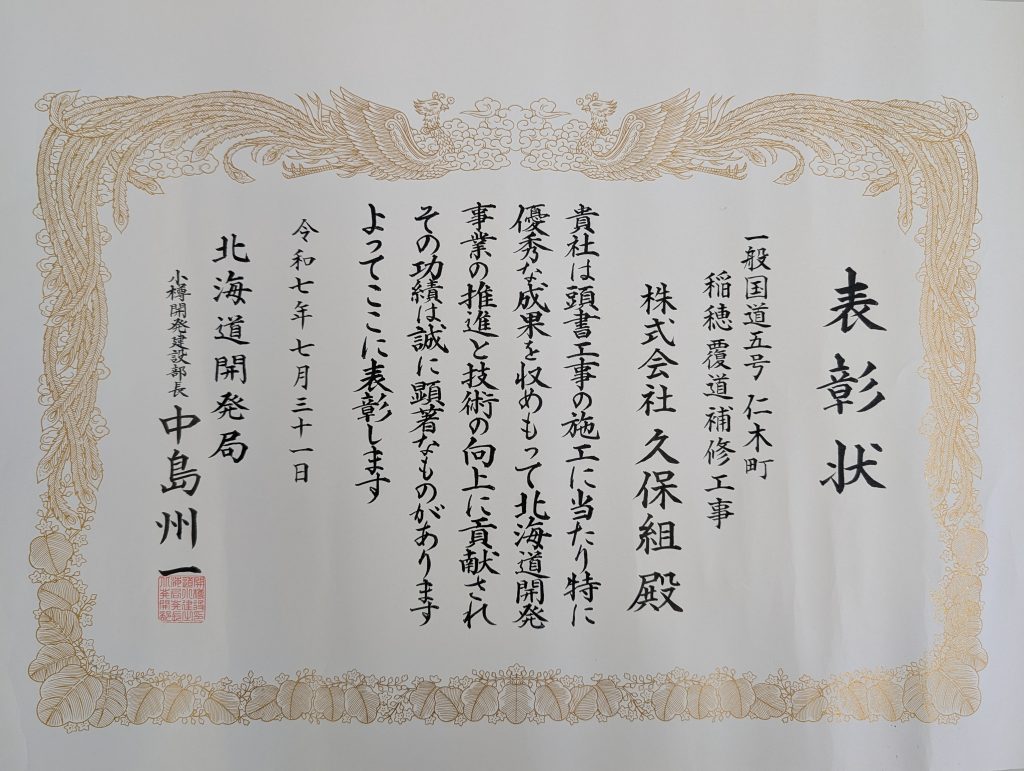 表彰状
一般国道五号 仁木町
稲穂覆道補修工事
株式会社 久保組 殿
貴社は頭書工事の施工に当たり特に
優秀な成果を収めもって北海道開発
事業の推進と技術の向上に貢献され
その功績は誠に顕著なものがあります
よってここに表彰します
令和七年七月三十一日
北海道開発局
小樽開発建設部長 中島州一